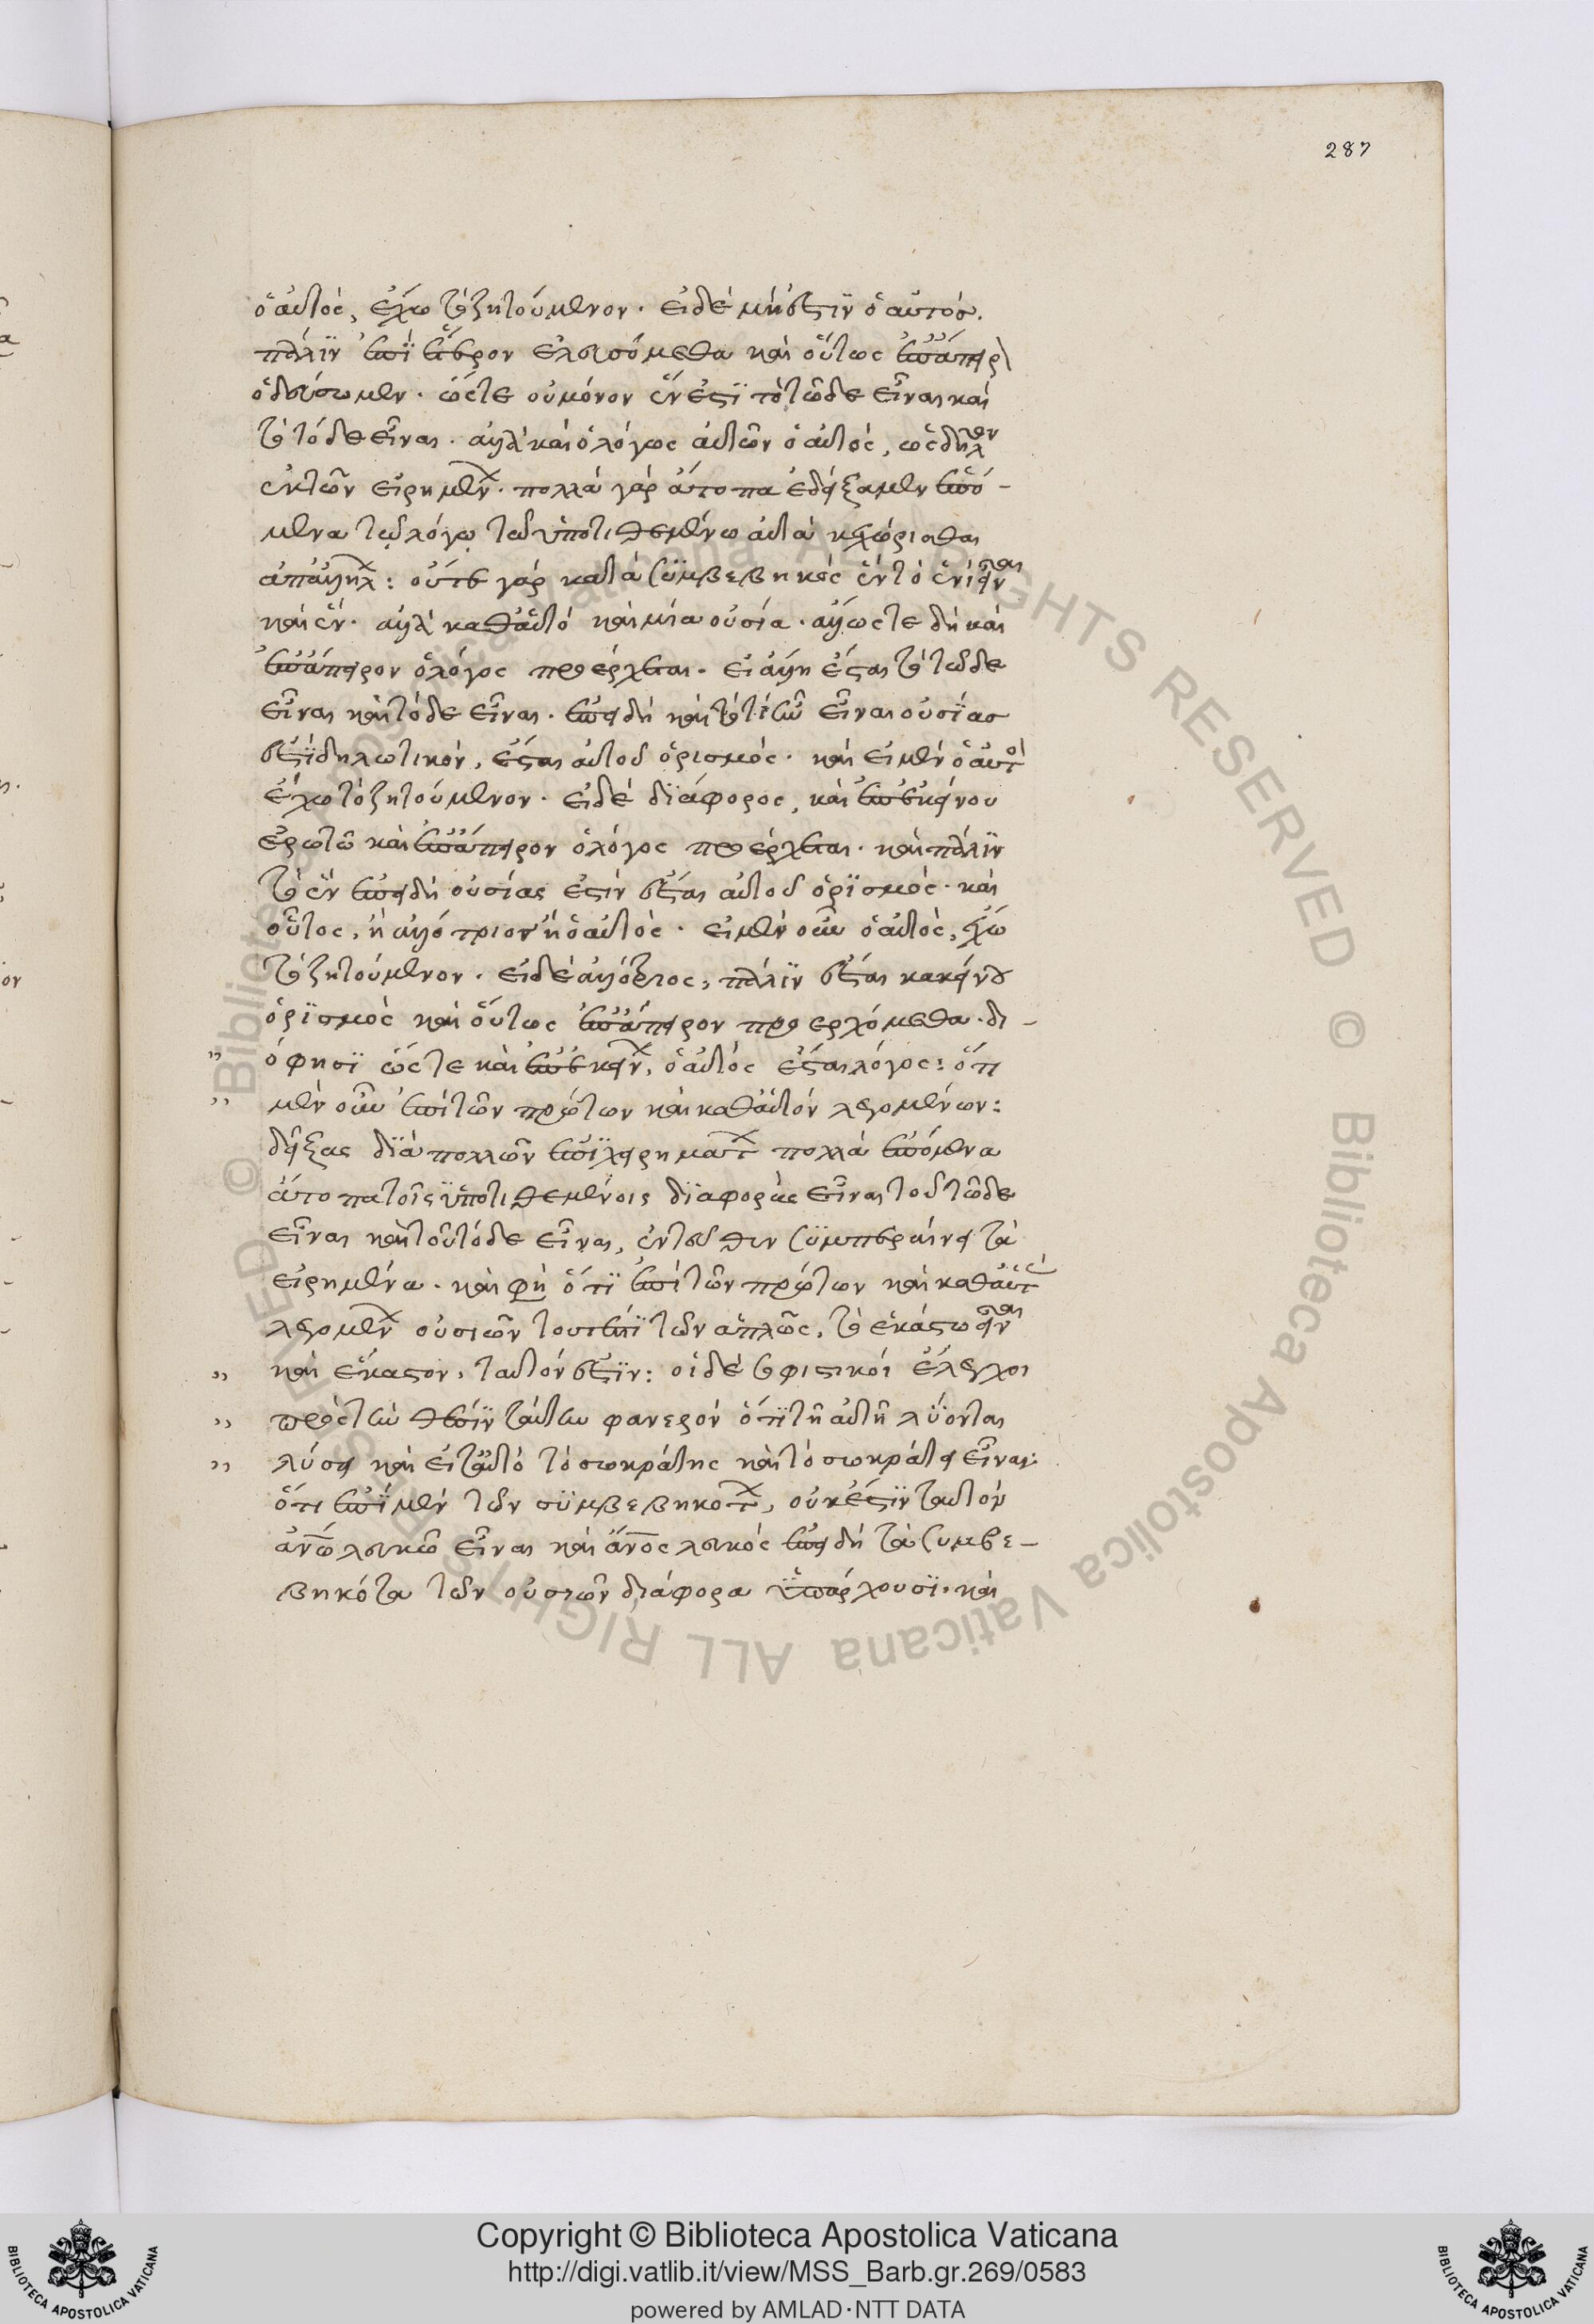 287
ὁ αὐτὸς, ἔχω τὸ ζητούμενον. εἰ δὲ μή ἐστιν ὁ αὐτός.
πάλιν ἐπὶ ἕτερον ἐλευσόμεθα καὶ οὕτως ἐπ' ἄπειρ
ὁδεύσωμεν. ὥστε οὐ μόνον ἕν ἐστι τὸ τῶδε εἶναι καὶ
τὸ τόδε εἶναι. ἀλλὰ καὶ ὁ λόγος αὐτῶν ὁ αὐτός, ὡς δῆλον
ἐκ τῶν εἰρημένων. πολλὰ γὰρ ἄτοπα ἐδείξαμεν ἑπό-
μενα τῷ λόγῳ τῶ ὑποτιθεμένω αὐτὰ κεχώρισθαι
ἀπ' ἀλλήλ: οὔτε γὰρ κατὰ συμβεβηκὸς ἓν τὸ ἑνὶ εἶναι
καὶ ἕν. ἀλλὰ καθ' αὑτό καὶ μία οὐσία. ἄλλως τε δὴ καὶ
ἐπ' ἄπειρον ὁ λόγος προέρχεται. εἰ ἄλλη ἔσται τὸ τῶδε
εἶναι καὶ τόδε εἶναι. ἐπεὶ δὴ καὶ τὸ τί ἦν εἶναι οὐσίας
ἐστὶ δηλωτικόν, ἔσται αὐτοῦ ὁρισμός. καὶ εἰ μὲν ὁ αὐτὸ
ἔχω τὸ ζητούμενον. εἰ δὲ διάφορος, καὶ ἐπ' ἐκείνου
ἐρωτῶ καὶ ἐπ' ἄπειρον ὁ λόγος προέρχεται. καὶ πάλιν
τὸ ἓν ἐπεὶ δὴ οὐσίας ἐστὶν ἔσται αὐτοῦ ὁρισμός. καὶ
οὗτος, ἢ ἀλλότριον ἢ ὁ αὐτὸς. εἰ μὲν οὖν ὁ αὐτὸς, ἔχω
τὸ ζητούμενον. εἰ δὲ ἀλλότριος, πάλιν ἔσται κακείνου
ὁρισμὸς καὶ οὕτως ἐπ' ἄπειρον προερχόμεθα. δι-
" ό φησι ὥστε καὶ ἐπ' ἐκείν, ὁ αὐτός ἔσται λόγος: ὅτι
" μὲν οὖν ἐπὶ τῶν πρώτων καὶ καθ' αὑτόν λεγομένων:
δείξας διὰ πολλῶν ἐπιχειρημάτ πολλὰ ἑπόμενα
ἄτοπα τοῖς ὑποτιθεμένοις διαφορὰς εἶναι τοῦ τῶδε
εἶναι καὶ τοῦ τόδε εἶναι, ἐντεῦθεν συμπεραίνει τὰ
εἰρημένα. καὶ φὴ ὅτι ἐπὶ τῶν πρώτων καὶ καθ' αὑτ
λεγομέν οὐσιῶν τουτέστι τῶν ἁπλῶς, τὸ ἑκάστω εἶναι
" καὶ ἕκαστον, ταὐτόν ἐστιν: οἱ δὲ σοφιστικοὶ ἔλεγχοι
" πρὸς τὴν θέσιν ταύτην φανερὸν ὅτι τῆ αὐτῆ λύονται
" λύσει καὶ εἰ ταὐτὸ τὸ σωκράτης καὶ τὸ σωκράτει εἶναι:
ὅτι ἐπὶ μὲν τῶν συμβεβηκότ, οὐκ ἔστιν ταὐτὸν
ἀνω λευκῶ εἶναι καὶ ἄνος λευκὸς ἐπεὶ δὴ τὰ συμβε-
βηκότα τῶν οὐσιῶν διάφορα ὑπάρχουσι. καὶ
Copyright © Biblioteca Apostolica Vaticana
http://digi.vatlib.it/view/MSS_Barb.gr.269/0583
powered by AMLAD·NTT DATA
BIBLIOTECA APOSTOLICA VATICANA
BIBLIOTECA APOSTOLICA VATICANA
© Biblioteca Apostolica Vaticana ALL RIGHTS RESERVED © Biblioteca Apostolica Vaticana ALL RIGHTS RESERVED